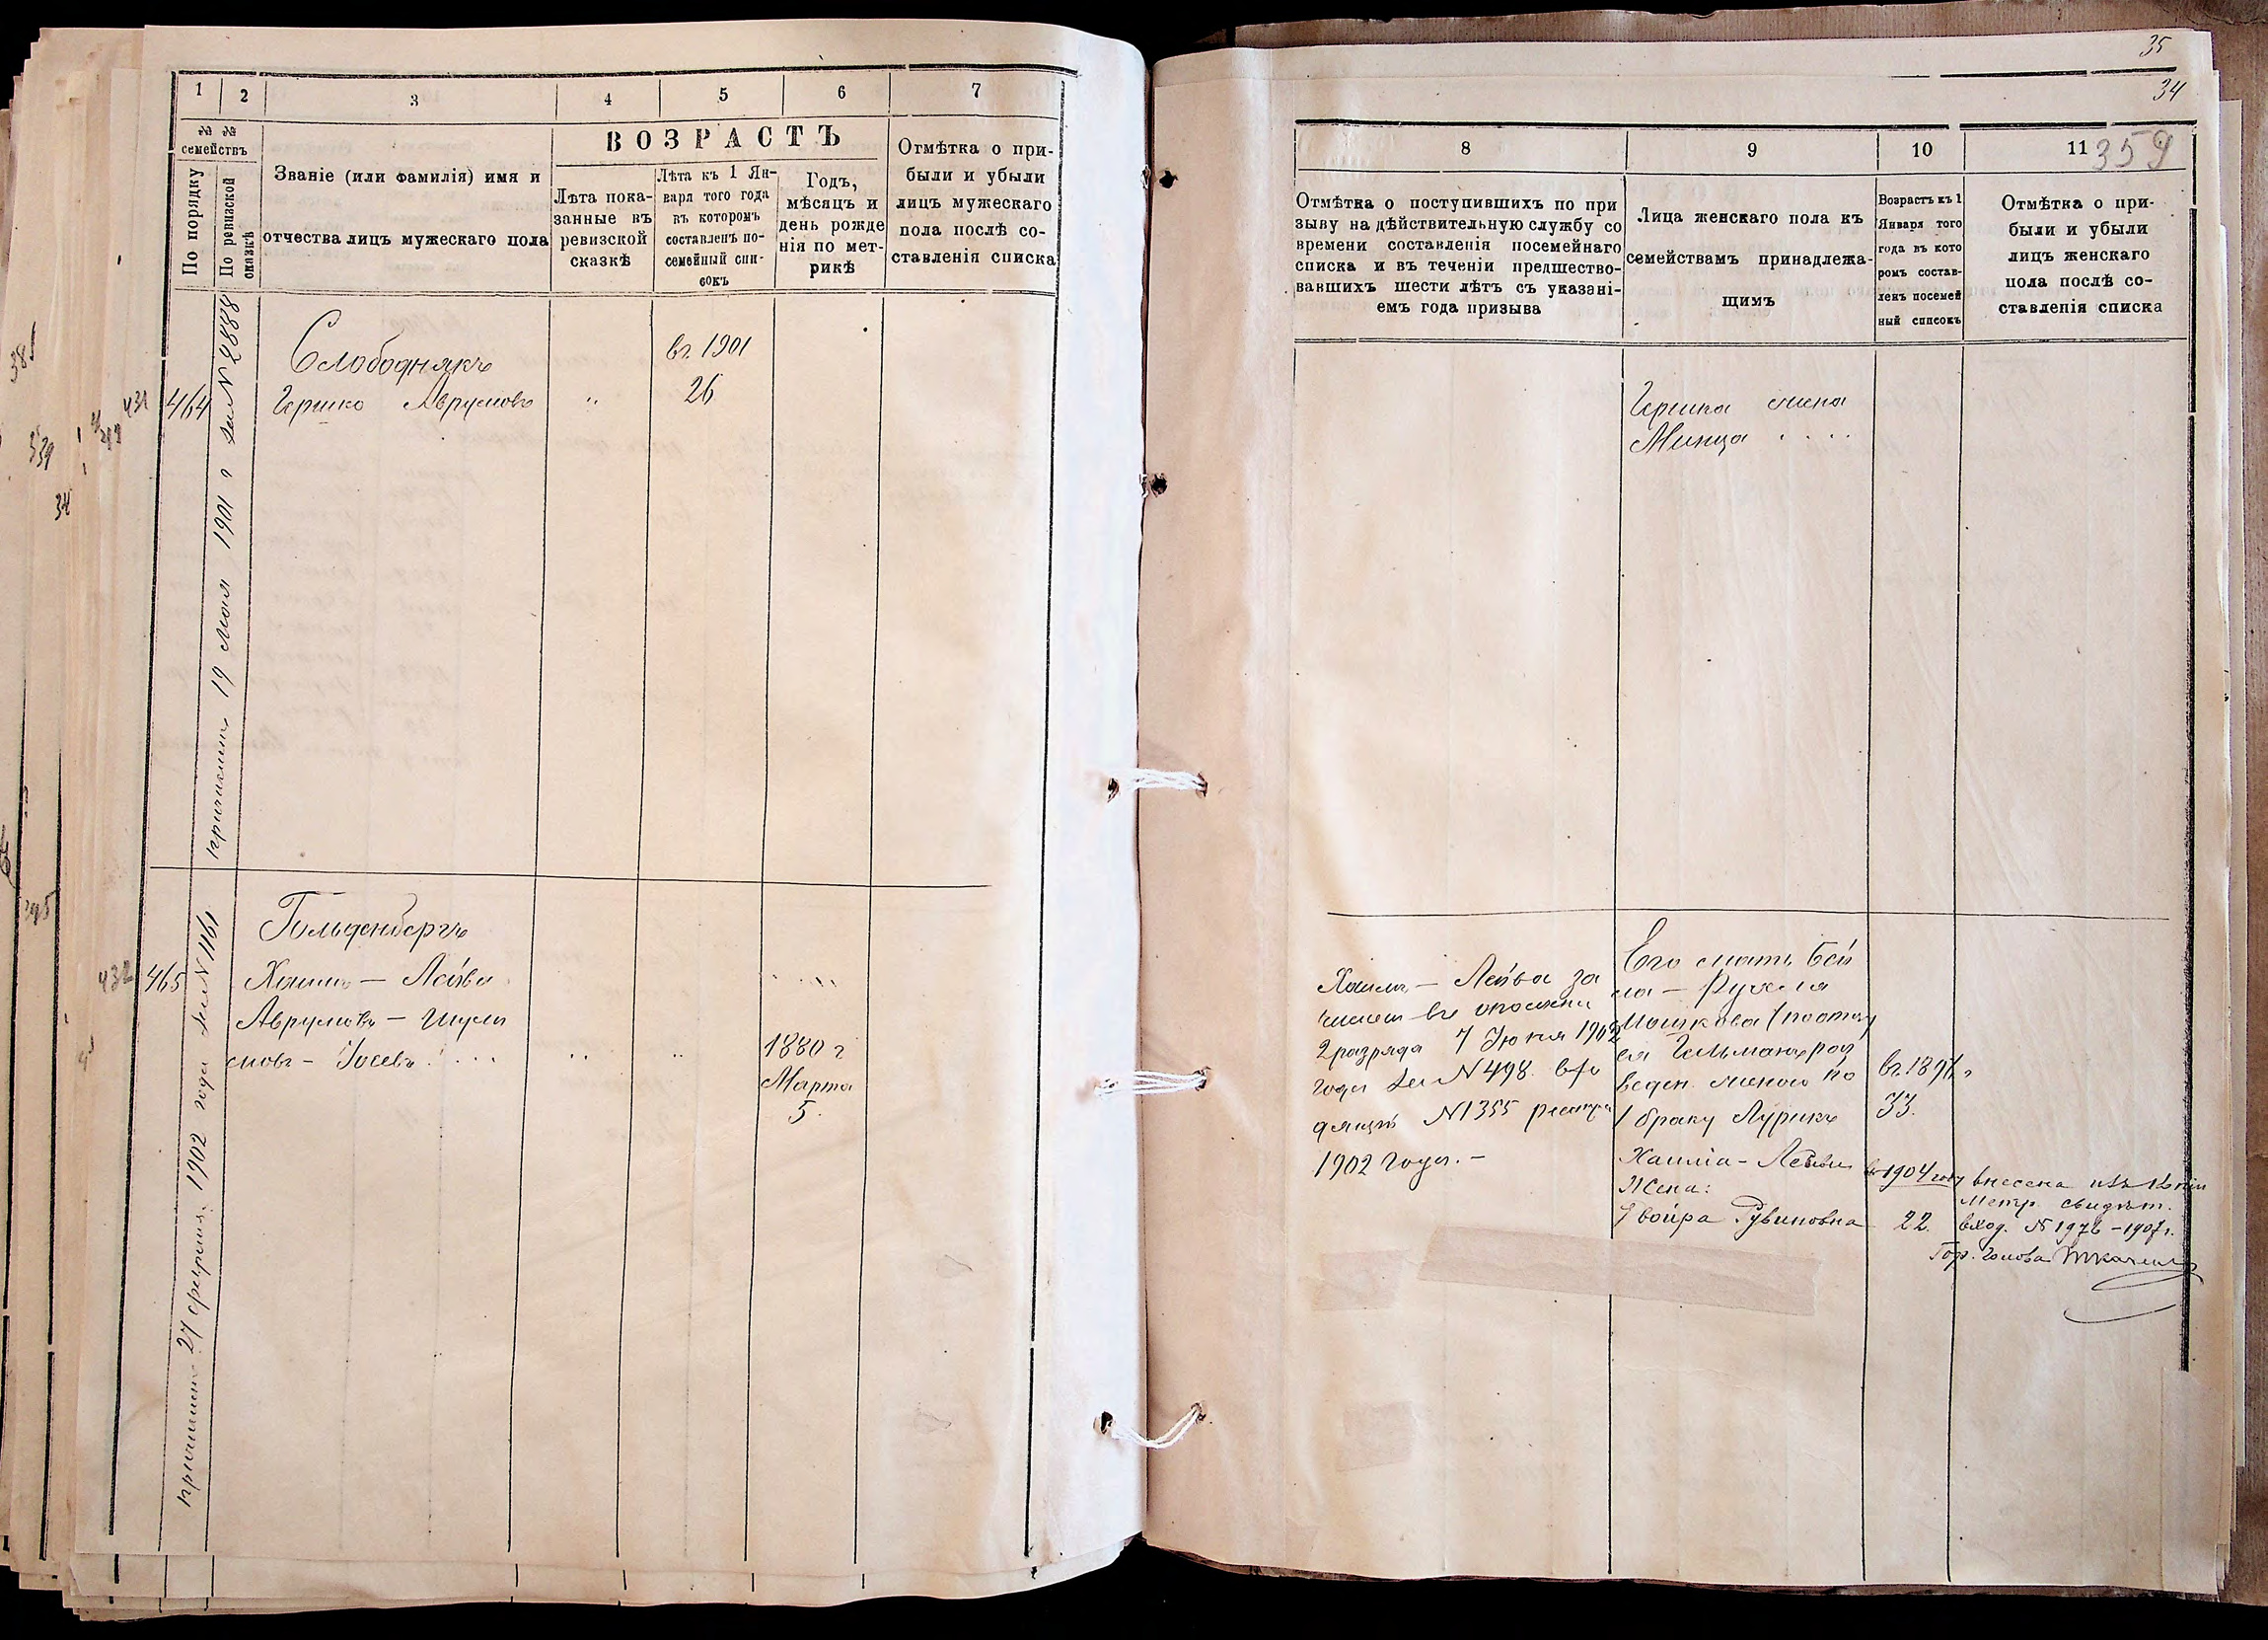 1
2
3
4
5
6
7
№ №
семействъ
По порядку
По ревизской
сказкѣ
Званіе (или фамилія) имя и
отчества лицъ мужескаго пола
ВОЗРАСТЪ
Лѣта пока-
занные въ
ревизской
сказкѣ
Лѣта къ 1 Ян-
варя того года
въ которомъ
составленъ по-
семейный спи-
сокъ
Годъ,
мѣсяцъ и
день рожде
нія по мет-
рикѣ
Отмѣтка о при-
были и убыли
лицъ мужескаго
пола послѣ со-
ставленія списка
431
464
причислен 19 мая 1901 г за № 2888
Слободнякъ
Гершко Аврумовъ
"
въ 1901
26
432
465
причислен 27 февраля 1902 года за № 1161
Гольденбергъ
Хаимъ — Лейва
Аврумовъ — Шули
мовъ — Іосевъ
"
"
1880 г
Марта
5.
381
539
34
295
35
34
359
8
9
10
11
Отмѣтка о поступившихъ по при
зыву на дѣйствительную службу со
времени составленія посемейнаго
списка и въ теченіи предшество-
вавшихъ шести лѣтъ съ указані-
емъ года призыва
Лица женскаго пола къ
семействамъ принадлежа-
щимъ
Возрастъ къ 1
Января того
года въ кото
ромъ состав-
ленъ посемей
ный списокъ
Отмѣтка о при-
были и убыли
лицъ женскаго
пола послѣ со-
ставленія списка
Гершка жена
Минца
Хаимъ — Лейва за
численъ въ ополчени
2 разряда 7 Іюня 1902
года за № 498.
дящій № 1355
1902 года. —
Его мать Бей
ла — Рухля
Мошкова (по отцу
Гельманъ
веден. женою по
1 браку Лурикъ
въ 1897 г
33.
Хаима — Лейвы
Жена:
Двойра Рувиновна
въ 1904 году
22.
внесена изъ копіи
Метр. свидѣт.
вход. № 1976 — 1907 г.
Гор. Голова